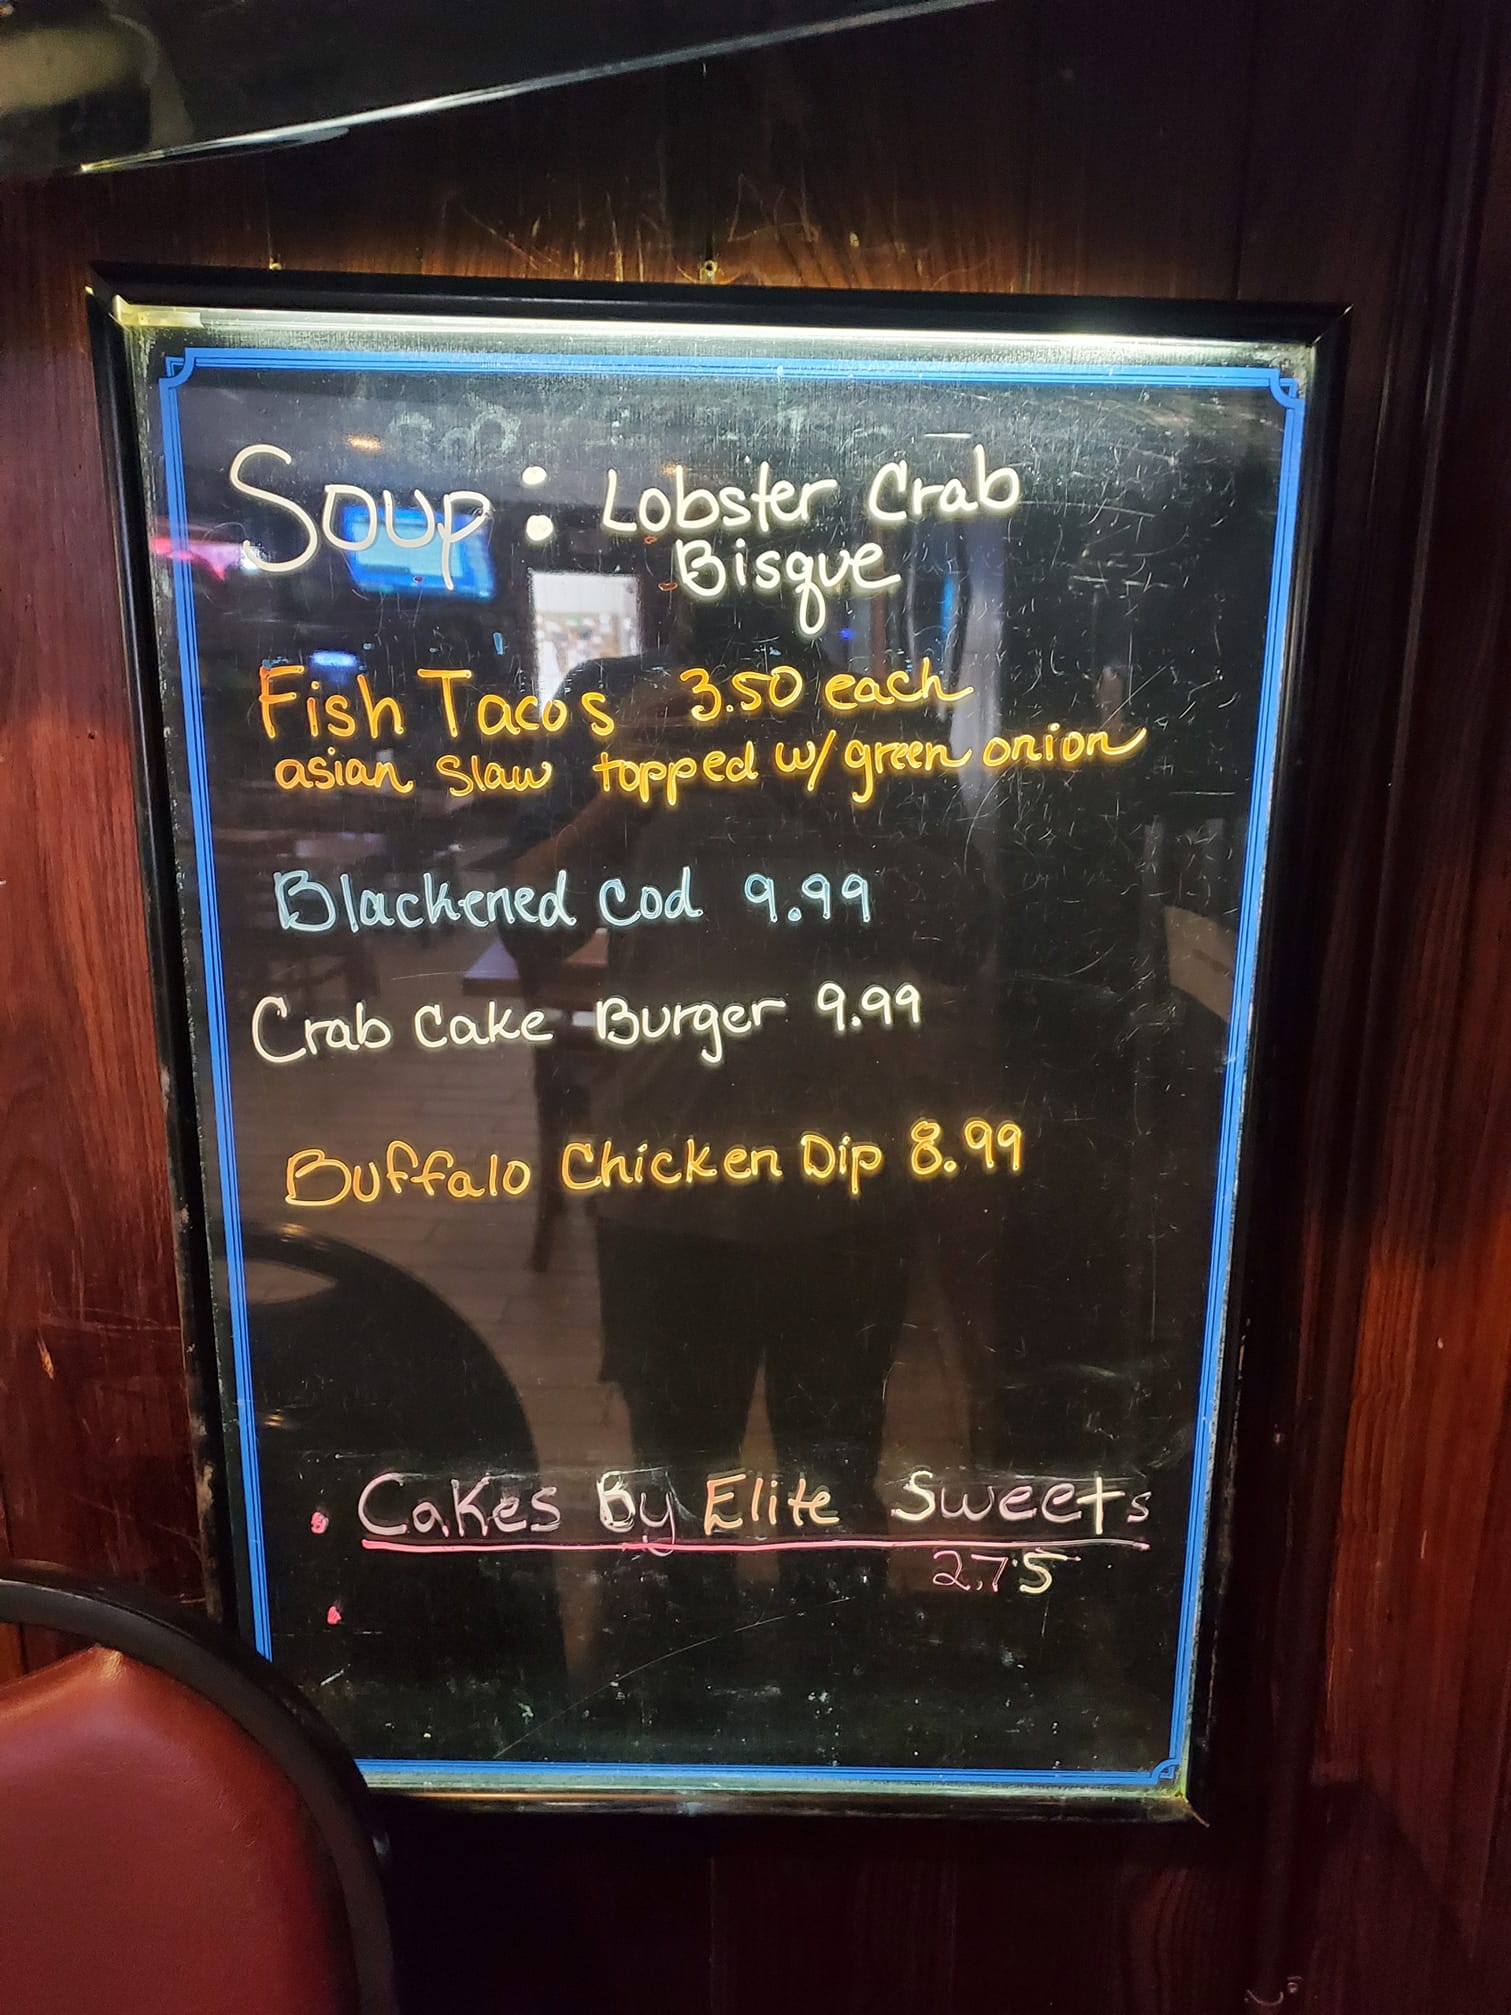 Soup: Lobster Crab
Bisque
Fish Tacos 3.50 each
asian slaw topped w/ green onion
Blackened Cod 9.99
Crab Cake Burger 9.99
Buffalo Chicken Dip 8.99
• Cakes By Elite Sweets
2.75
•